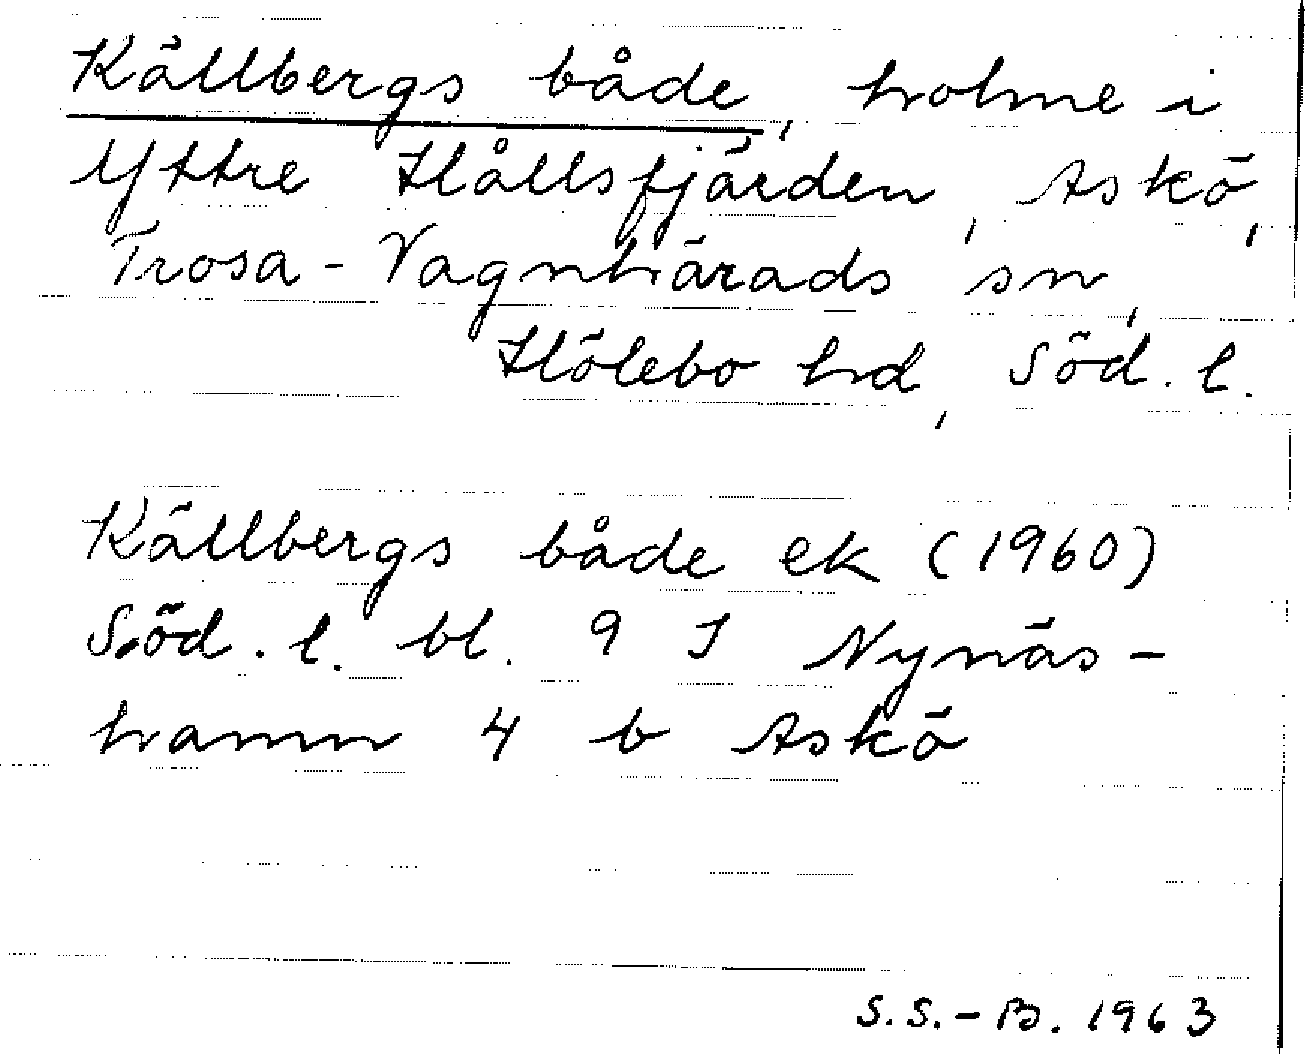 Källbergs både, holme i
Yttre Hållsfjärden, Askö,
Trosa-Vagnhärads sn,
Hölebo hd, Söd. l.
Källbergs både ek (1960)
Söd. l. bl. 9 J Nynäs-
hamn 4 b Askö
S.S.-B. 1963